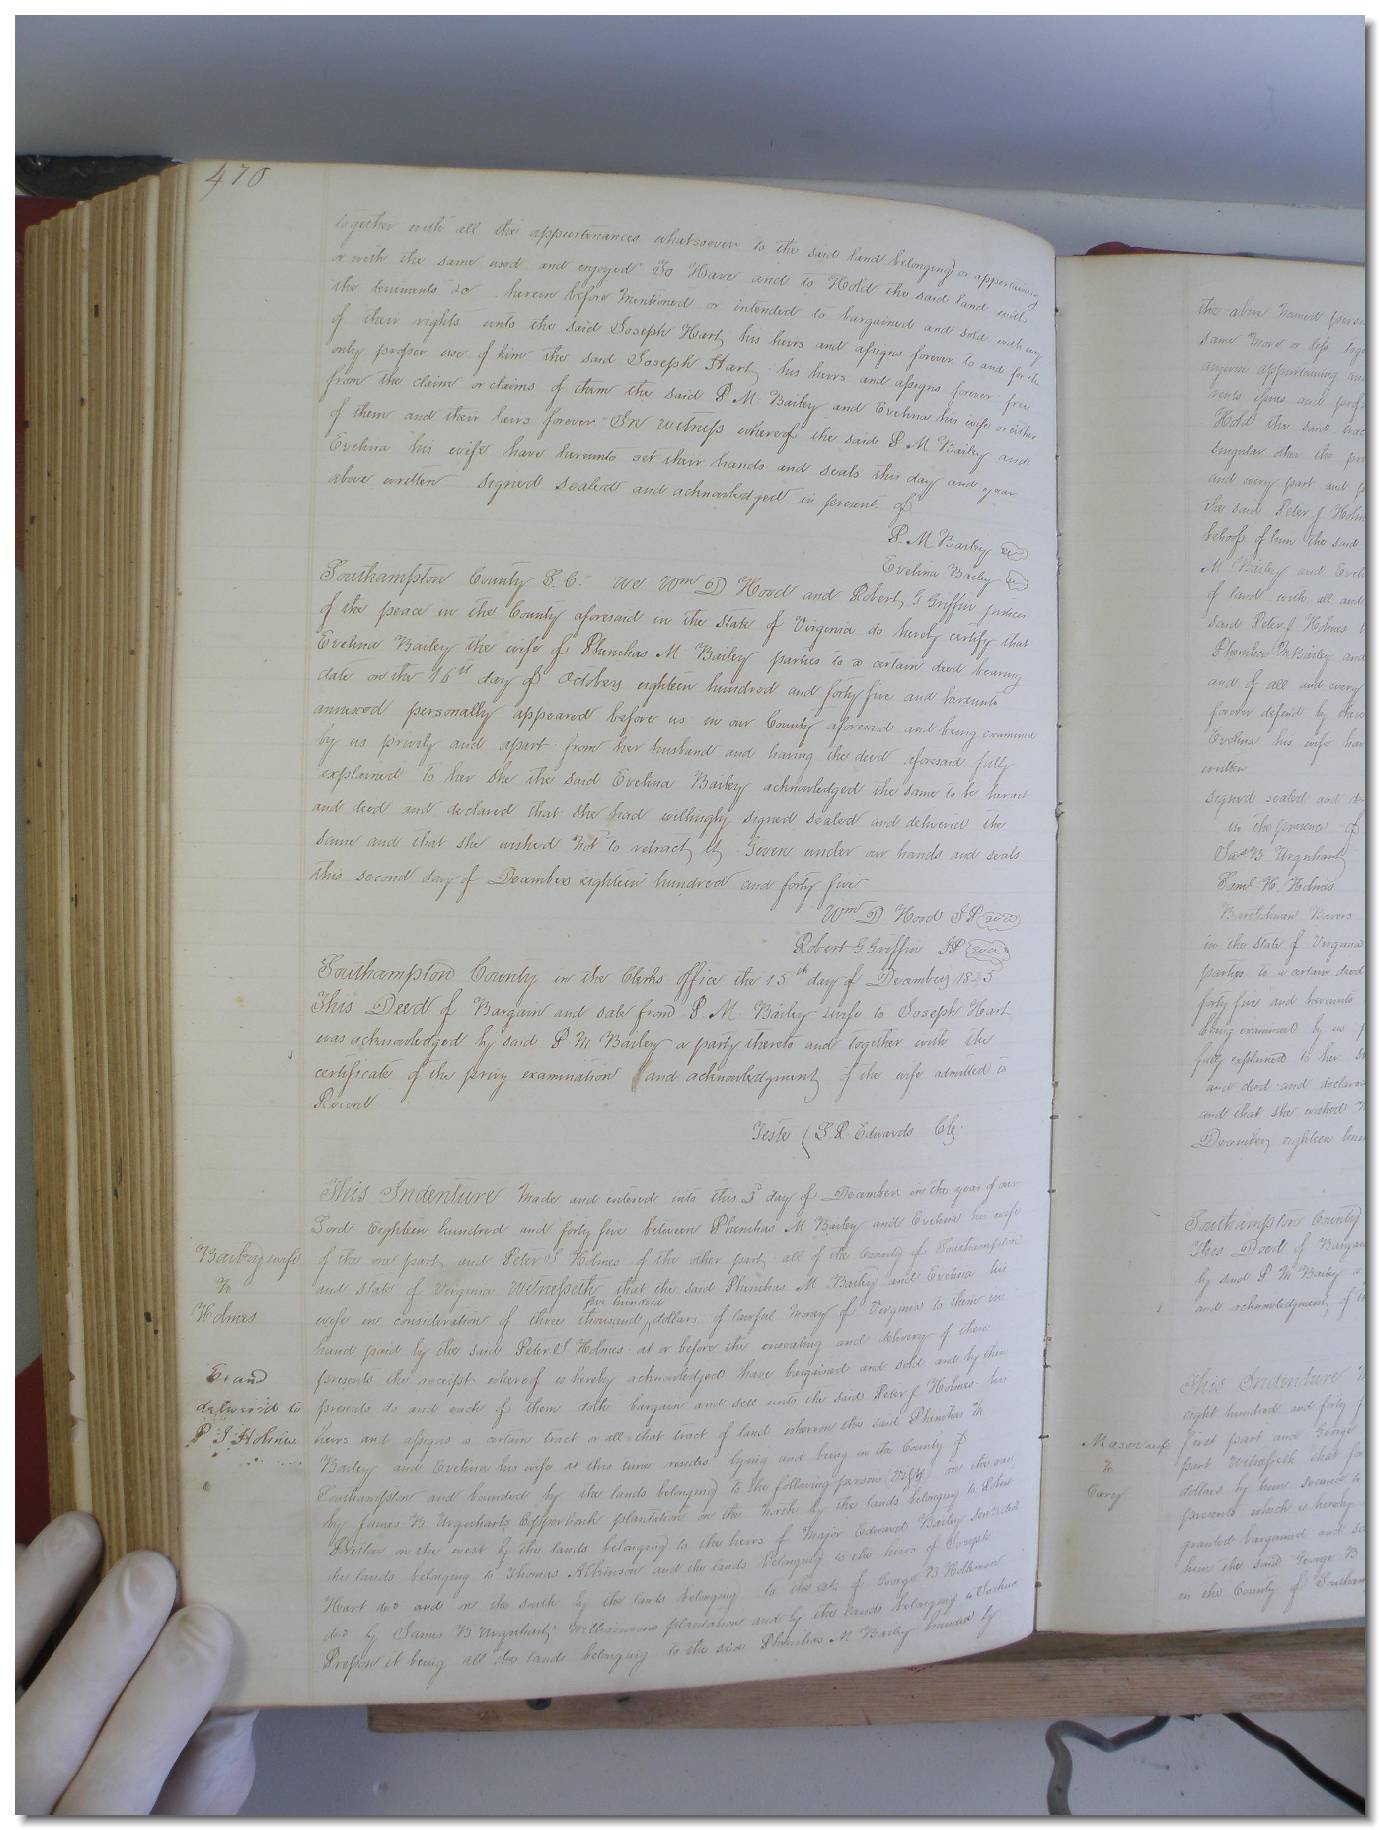 470
together with all the appurtenances whatsoever to the said land belonging or appertaining
or with the same used and enjoyed To Have and to Hold the said land with
the tenements &c herein before mentioned or intended to bargained and sold with any
of their rights unto the said Joseph Hart his heirs and assigns forever to and for the
only proper use of him the said Joseph Hart his heirs and assigns forever free
from the claim or claims of them the said P M Bailey and Evelina his wife or either
of them and their heirs forever In witness whereof the said P M Bailey and
Evelina his wife have hereunto set their hands and seals this day and year
above written signed sealed and acknowledged in present of
P. M Bailey
Evelina Bailey
Southampton County S.C. We Wm D Hood and Robert G Griffin justices
of the peace in the County aforesaid in the State of Virginia do hereby certify that
Evelina Bailey the wife of Phinehas M Bailey parties to a certain deed bearing
date on the 16th day of October eighteen hundred and forty five and hereunto
annexed personally appeared before us in our County aforesaid and being examined
by us privily and apart from her husband and having the deed aforesaid fully
explained to her she the said Evelina Bailey acknowledged the same to be her act
and deed and declared that she had willingly signed sealed and delivered the
same and that she wished not to retract it Given under our hands and seals
this second day of December eighteen hundred and forty five
Wm D Hood JP seal
Robert G Griffin JP seal
Southampton County in the Clerks office the 15th day of December 1845
This Deed of Bargain and sale from P M Bailey & wife to Joseph Hart
was acknowledged by said P M Bailey a party thereto and together with the
certificate of the privy examination and acknowledgment of the wife admitted to
Record
Teste L R Edwards Clk.
This Indenture made and entered into this 3 day of December in the year of our
Lord Eighteen hundred and forty five between Phinehas M Bailey and Evelina his wife
Bailey & wife
To
Holmes
of the one part and Peter J Holmes of the other part all of the County of Southampton
and State of Virginia Witnesseth that the said Phinehas M Bailey and Evelina his
five hundred
wife in consideration of three thousand dollars of lawful money of Virginia to them in
hand paid by the said Peter J Holmes at or before the ensealing and delivery of these
Ex and
delivered to
P J Holmes
presents the receipt whereof is hereby acknowledged have bargained and sold and by these
presents do and each of them doth bargain and sell unto the said Peter J Holmes his
heirs and assigns a certain tract or all that tract of land whereon the said Phinehas M
Bailey and Evelina his wife at this time resides lying and being in the County of
Southampton and bounded by the lands belonging to the following persons (viz) on the east
by James B. Urquharts plantation on the North by the lands belonging to
on the west by the lands belonging to the heirs of Major Edward Bailey
the lands belonging to Thomas Atkinson and the lands belonging to the heirs of Joseph
Hart decd and on the south by the lands belonging to the est. of George B Holleman
decd by James B Urquharts plantation and by the lands belonging to Joshua
it being all the lands belonging to the said Phinehas M Bailey by
the above named
same more or less
anywise appertaining
rents issues and
Hold the said
singular other the
and every part and
the said Peter J Holm
behoof of him the said
M Bailey and
of land with all and
said Peter J Holmes
Phinehas M Bailey and
and of all and every
forever defend by
Evelina his wife
written
signed sealed and
in the presence of
Jas B Urquhart
Saml H. Holmes
in the State of Virginia
parties to a certain deed
forty five and hereunto
being examined by us
fully explained to her
and deed and declared
and that she wished
December eighteen
Southampton County
This Deed of Bargain
by said P M Bailey
and acknowledgment of
This Indenture
eight hundred and forty
Mason & wife
To
Cary
first part and George
part Witnesseth that for
dollars by him
presents which is hereby
granted bargained and
him the said George B
in the County of Southam